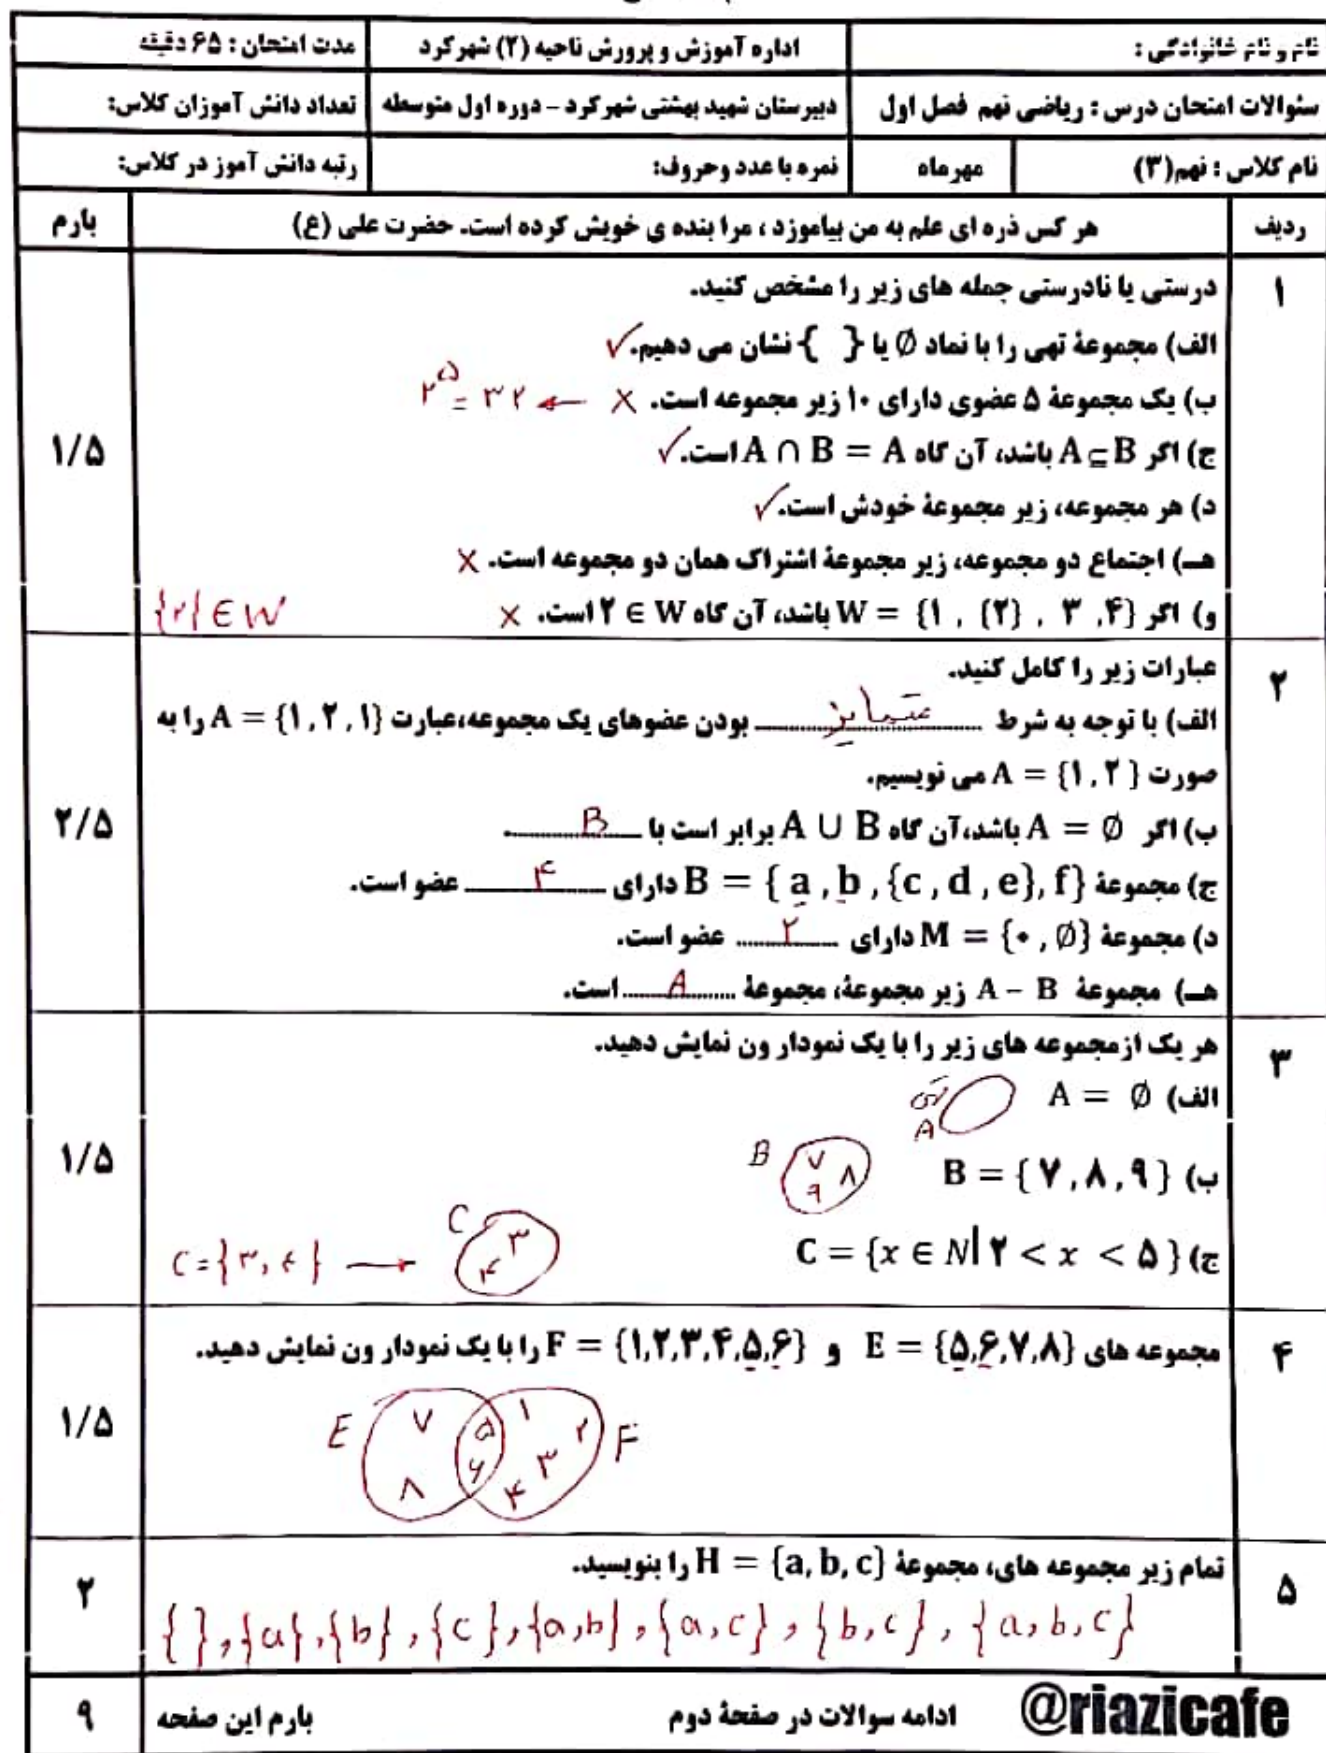 نام و نام خانوادگی :
اداره آموزش و پرورش ناحیه (۲) شهرکرد
مدت امتحان : ۶۵ دقیقه
سئوالات امتحان درس : ریاضی نهم فصل اول
دبیرستان شهید بهشتی شهرکرد – دوره اول متوسطه
تعداد دانش آموزان کلاس:
نام کلاس : نهم(۳)
مهرماه
نمره با عدد وحروف:
رتبه دانش آموز در کلاس:
ردیف
هر کس ذره ای علم به من بیاموزد ، مرا بنده ی خویش کرده است. حضرت علی (ع)
بارم
۱
درستی یا نادرستی جمله های زیر را مشخص کنید.
الف) مجموعهٔ تهی را با نماد ∅ یا { } نشان می دهیم. ✓
ب) یک مجموعهٔ ۵ عضوی دارای ۱۰ زیر مجموعه است. × ← ۲^۵ = ۳۲
ج) اگر A ⊆ B باشد، آن گاه A ∩ B = A است. ✓
۱/۵
د) هر مجموعه، زیر مجموعهٔ خودش است. ✓
هـ) اجتماع دو مجموعه، زیر مجموعهٔ اشتراک همان دو مجموعه است. ×
و) اگر W = {۱ , {۲} , ۳ , ۴} باشد، آن گاه ۲ ∈ W است. × {۲} ∈ W
۲
عبارات زیر را کامل کنید.
الف) با توجه به شرط متمایز بودن عضوهای یک مجموعه،عبارت A = {۱ , ۲ , ۱} را به
صورت A = {۱ , ۲ } می نویسیم.
ب) اگر A = ∅ باشد،آن گاه A ∪ B برابر است با B
۲/۵
ج) مجموعهٔ B = { a , b , {c , d , e}, f} دارای ۴ عضو است.
د) مجموعهٔ M = {۰ , ∅} دارای ۲ عضو است.
هـ) مجموعهٔ A – B زیر مجموعهٔ، مجموعهٔ A است.
۳
هر یک ازمجموعه های زیر را با یک نمودار ون نمایش دهید.
الف) A = ∅ تهی A
ب) B = { ۷ , ۸ , ۹ } B ۷ ۸ ۹
۱/۵
ج) C = {x ∈ N| ۲ < x < ۵ } C ۳ ۴ ← C = {۳, ۴}
۴
مجموعه های E = {۵,۶,۷,۸} و F = {۱,۲,۳,۴,۵,۶} را با یک نمودار ون نمایش دهید.
۱/۵
E ۷ ۸ ۵ ۶ ۱ ۲ ۳ ۴ F
۵
تمام زیر مجموعه های، مجموعهٔ H = {a, b, c} را بنویسید.
۲
{ }, {a}, {b}, {c}, {a,b}, {a,c}, {b,c}, {a,b,c}
@riazicafe
ادامه سوالات در صفحهٔ دوم
بارم این صفحه
۹